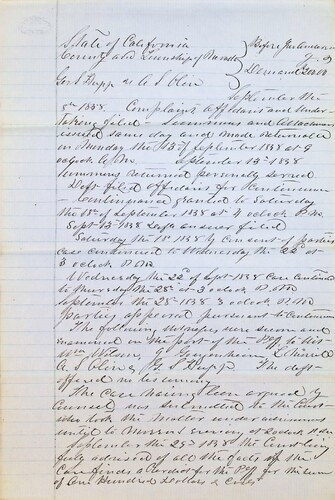 State of California
County and Township of
Before
Demand
Geo. Hupp vs A S Olin
September the
5th 1858. Complaint Affidavit and Under
taking filed - Summons and Attachment
issued same day and made returnable
on Monday the 13th of September 1858 at 9
oclock A.M. September 13th 1858
Summons returned personally served
Deft filed affidavit for Continuance
Continuance granted to Saturday
the 18th of September 1858 at 4 oclock P.M
Sept 13th 1858 Defts answer filed
Saturday the 18th 1858 by Consent of parties
case continued to Wednesday the 22nd at
3 oclock P.M.
Wednesday the 22nd of Sept 1858 Case Continued
to Thursday the 25th at 3 oclock P.M
September the 25th 1858 3 oclock P.M.
Parties appeared pursuant to Continuance
The following witnesses were sworn and
examined on the part of the Plff to wit
Wm Wilson, G.
A. S Olin & G S Hupp The deft
offered no testimony
The Case having been argued by
Counsel was submitted to the Court
who took the matter under advisement
until
September the 25th 1858 the Court being
fully advised of all the facts of the
Case finds a verdict for the Plff for the sum
of One Hundred Dollars & Costs